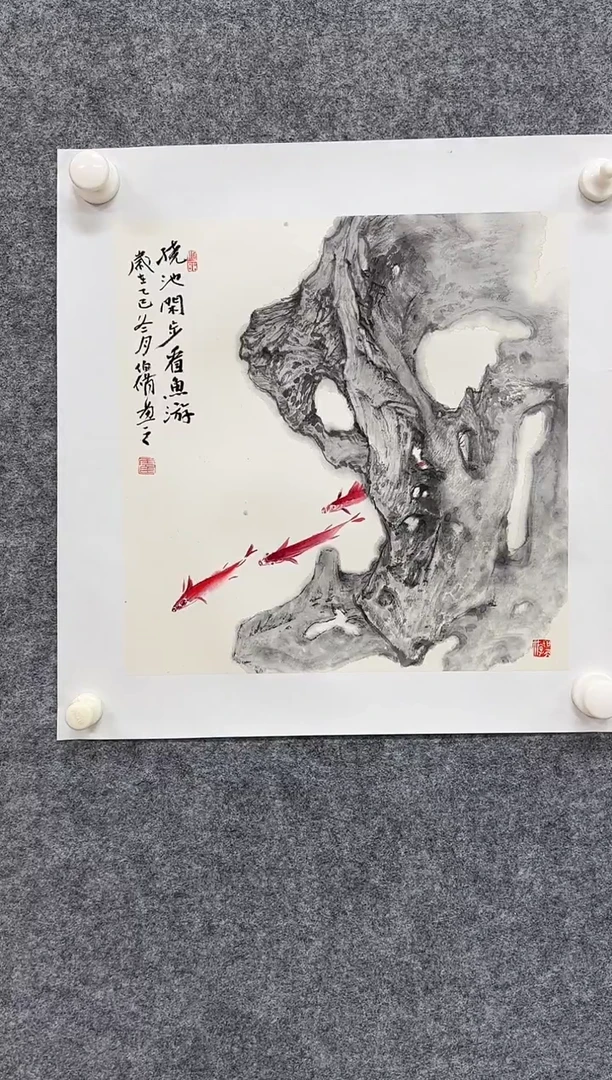 繞池閑步看魚游
歲在乙巳冬月伯脩畫之